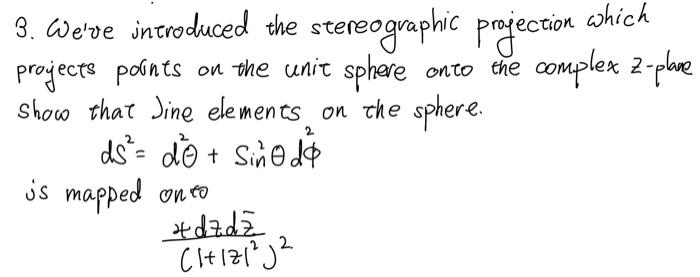 3. We've introduced the stereographic projection which
projects points on the unit sphere onto the complex z-plane
show that line elements on the sphere.
ds² = d²θ + Sin²θ dϕ²
is mapped onto
4dzdz̄
(1+|z|²)²